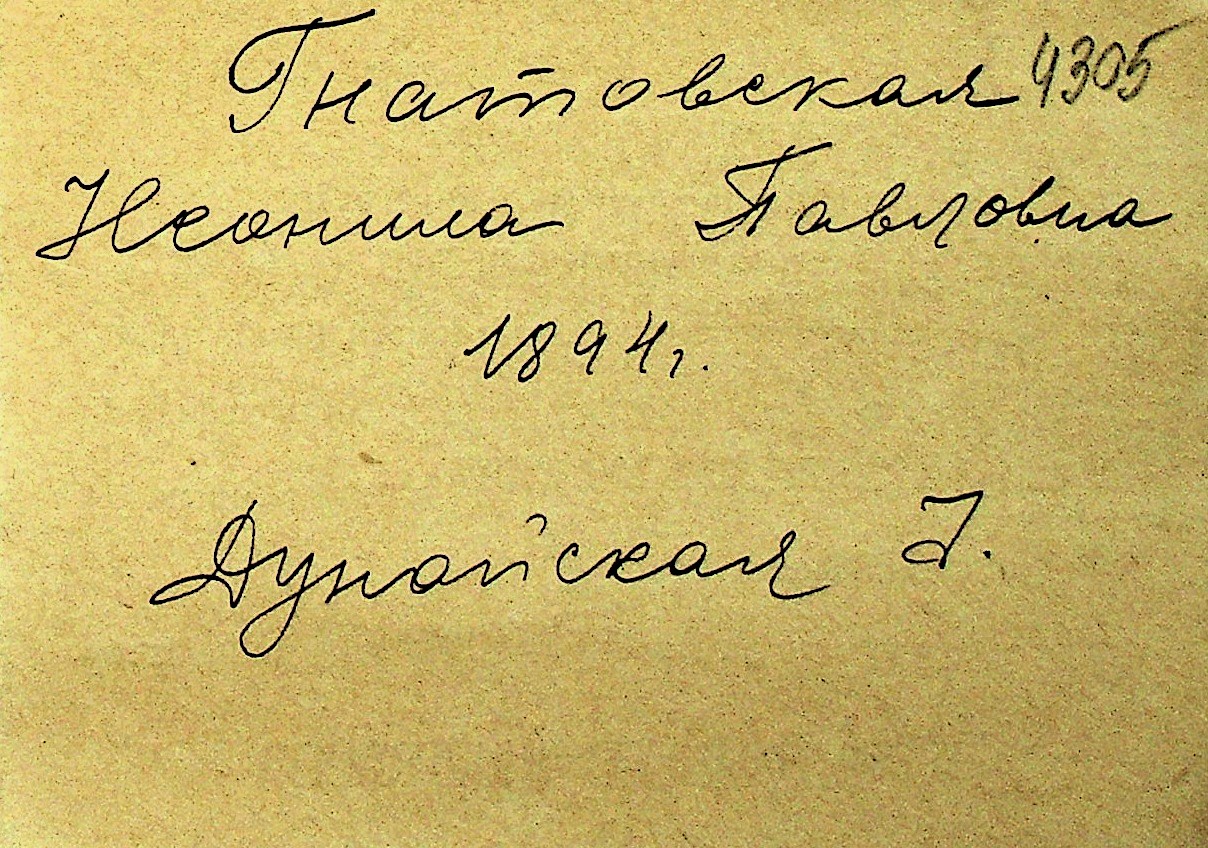 Гнатовская 4305
Неонила Павловна
1894г.
Дунайская 7.